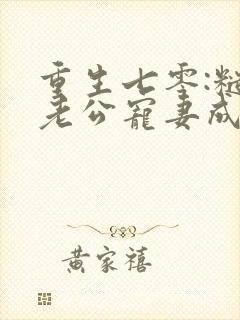 重生七零:糙
老公宠妻成
黄家禧